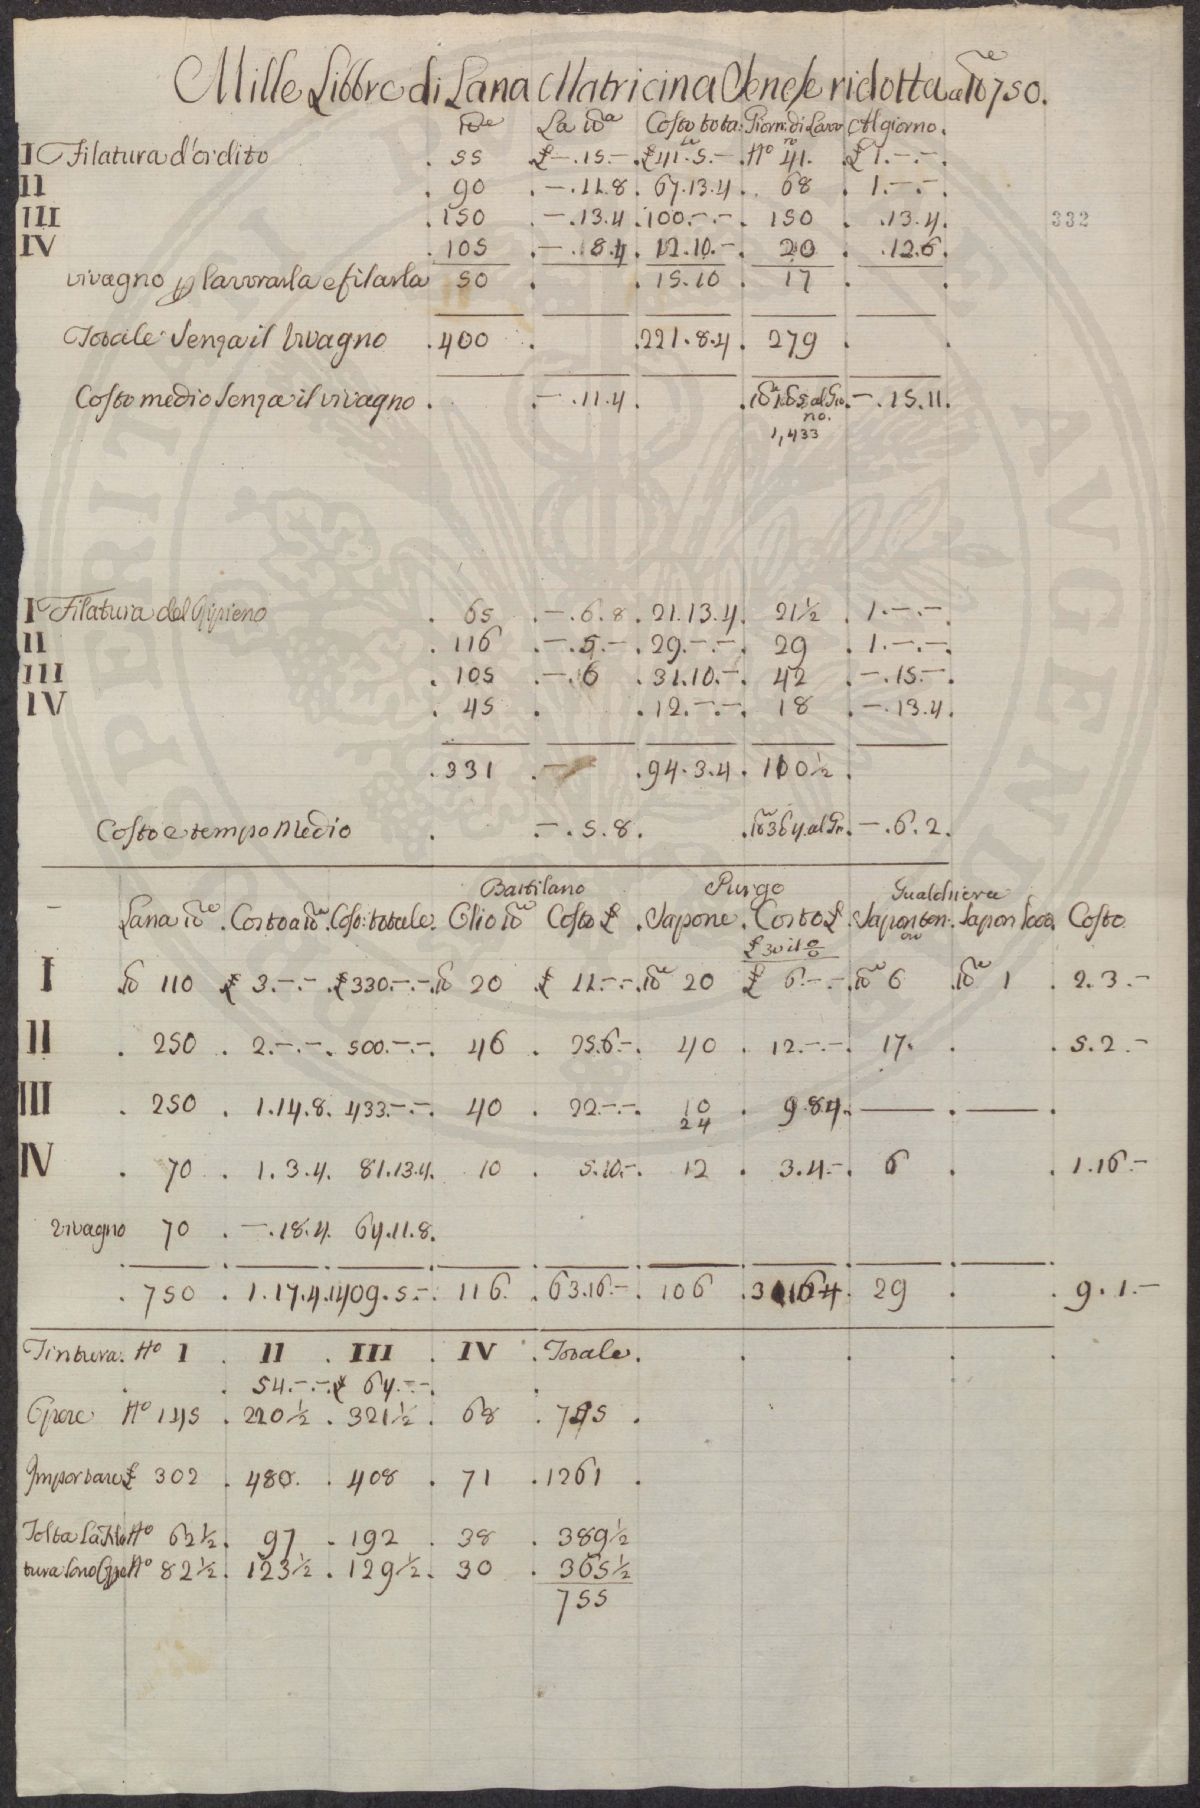 Mille Libbre di Lana Matricina Senese ridotta a lb.e 750.
lb.e La lb.a Costo tota:le Giorn: di Lavo:ro Al giorno.
I Filatura d'ordito . 55 . £ -.15.- . £ 41.5.- . N.o 41. . £ 1.-.-.
II . 90 . -.11.8 . 67.13.4 . 68 . 1.-.-.
III . 150 . -.13.4 . 100.-.- . 150 . .13.4.
332
IV . 105 . -. 8.4 . 12.10.- . 20 . .12.6.
vivagno p lavorarla e filarla 50 . . 15.10 . 17 . .
Totale senza il Vivagno . 400 . .221.8.4 . 279 . .
Costo medio senza il vivagno . . -.11.4 . . al Gio . -.15.11.
no.
1,433
I Filatura del Ripieno . 65 . -.6.8 . 21.13.4 . 21½ . 1.-.-.
II . 116 . -.5.- . 29.-.- . 29 . 1.-.-.
III . 105 . -.6 . 31.10.- . 42 . -.15.-.
IV . 45 . . 12.-.- . 18 . -.13.4.
. 331 . - . 94.3.4 . 110½ .
Costo e tempo Medio . -.5.8. . lb.e 3 64 al Gn. -.6.2.
Battilano Purgo Gualchiera
Lana lb.e . Costo a lb.e . Cost: totale . Olio lb.e Costo £ . Sapone . Costo £ . Sapon ten: . Sapon soda Costo
£ 30 il %
I lb 110 . £ 3.-.- . £ 330.-.- . lb 20 . £ 11.-.- . lb.e 20 £ 6.-.- . lb.e 6 lb.e 1 . 2.3.-
II . 250 . 2.-.- . 500.-.- . 46 . 25.6.- . 40 . 12.-.- . 17. . . 5.2.-
III . 250 . 1.14.8 . 433.-.- . 40 . 22.-.- . 10 . 9.8.4 . — . — .
24
IV . 70 . 1.3.4 . 81.13.4 . 10 . 5.10.- . 12 . 3.4.- . 6 . . 1.16.-
vivagno 70 . -.18.4 . 64.11.8.
. 750 . 1.17.4 . 1409.5.- . 116 . 63.16.- . 106 . . 29 . . 9.1.-
Tintura . N.o I . II . III . IV . Totale .
. 54.-.- . £ 64.-.- .
Opere N.o 145 . 220½ . 321½ . 68 . 755 .
Importare £ 302 . 480 . 408 . 71 . 1261 .
Tolta la Fila N.o 62½ . 97 . 192 . 38 . 389½
tura sono Opre N.o 82½ . 123½ . 129½ . 30 . 365½
755